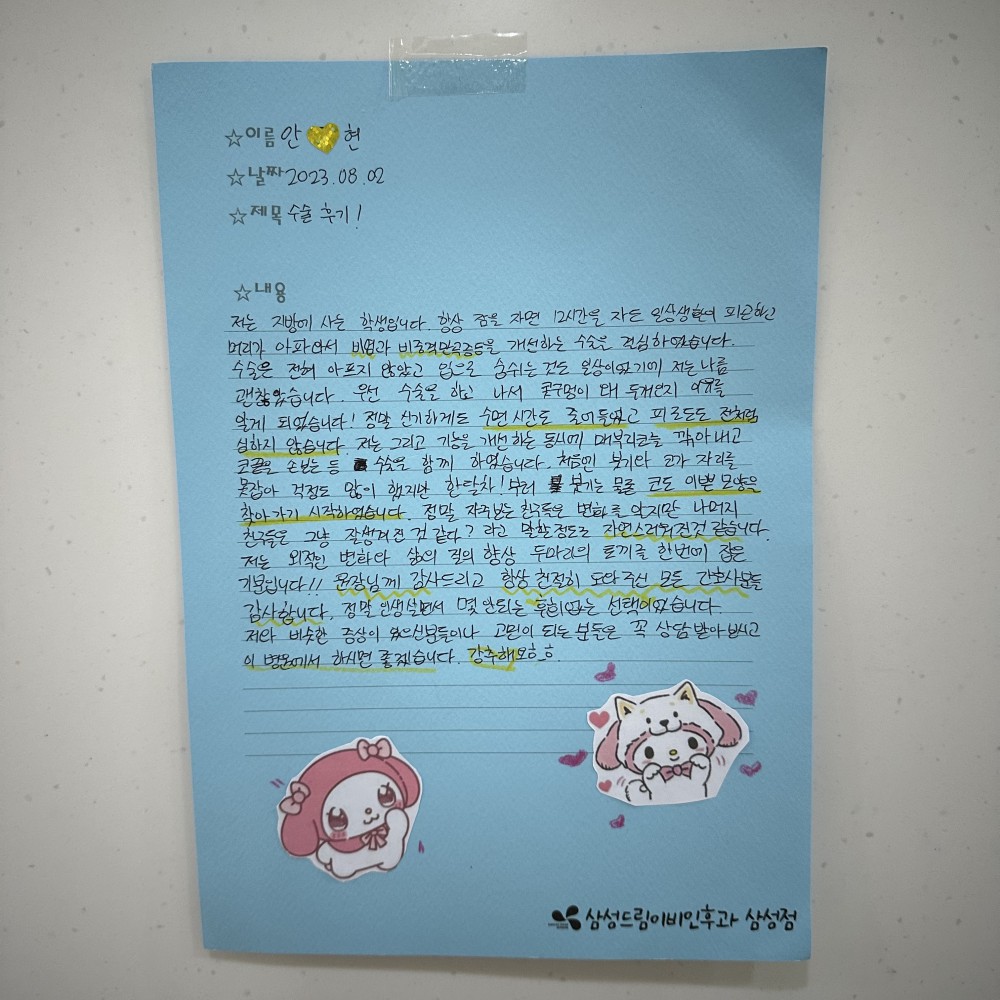 ☆이름 안 현
☆날짜 2023.08.02
☆제목 수술 후기!
☆내용
저는 지방에 사는 학생입니다. 항상 잠을 자면 12시간을 자도 일상생활이 피곤하고
머리가 아파와서 비염과 비중격만곡증등을 개선하는 수술을 결심하였습니다.
수술은 전혀 아프지 않았고 입으로 숨쉬는 것은 일상이였기에 저는 나름
괜찮았습니다. 우선 수술을 하고 나서 콧구멍이 왜 두개인지 이유를
알게 되었습니다! 정말 신기하게도 수면 시간도 줄어들었고 피로도도 전처럼
심하지 않습니다. 저는 그리고 기능을 개선하는 동시에 매부리코를 깎아내고
코끝을 손보는 등 수술을 함께 하였습니다. 처음엔 붓기와 코가 자리를
못잡아 걱정도 많이 했지만 한달차!부터 붓기는 물론 코도 이쁜 모양을
찾아가기 시작하였습니다. 정말 자주보는 친구들은 변화를 알지만 나머지
친구들은 그냥 잘생겨진 것 같다? 라고 말할정도로 자연스러워진것 같습니다.
저는 외적인 변화와 삶의 질의 향상 두마리의 토끼를 한번에 잡은
기분입니다!! 원장님께 감사드리고 항상 친절히 도와주신 모든 간호사분들
감사합니다. 정말 인생살면서 몇 안되는 후회없는 선택이였습니다.
저와 비슷한 증상이 있으신분들이나 고민이 되는 분들은 꼭 상담 받아보시고
이 병원에서 하시면 좋겠습니다. 강추해요ㅎ_ㅎ.
삼성드림이비인후과 삼성점